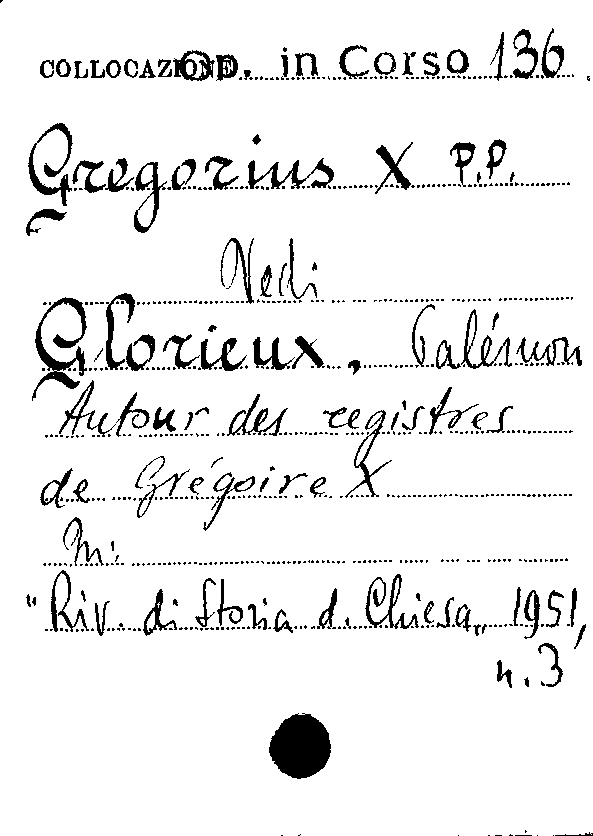 COLLOCAZIONE Op. in Corso 136
Gregorius X P.P.
Vedi
Glorieux, Palémon
Autour des registres
de Grégoire X
in:
"Riv. di Storia d. Chiesa„ 1951,
n. 3